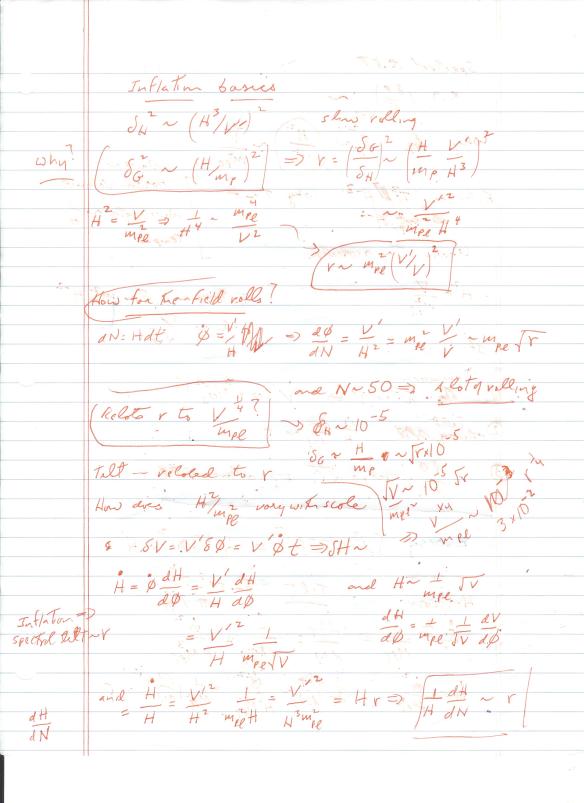 Inflation basics
δ_H² ~ (H³/V')² slow rolling
why? δ_G² ~ (H/m_p)² ⇒ r = (δ_G/δ_H)² ~ (H/m_p V'/H³)²
H² = V/m_pl² ⇒ 1/H⁴ ~ m_pl⁴/V² ∴ ~ V'²/(m_pl² H⁴)
r ~ m_pl² (V'/V)²
How far the field rolls?
dN = Hdt φ̇ = V'/H ⇒ dφ/dN = V'/H² = m_pl² V'/V ~ m_pl √r
and N ~ 50 ⇒ a lot of rolling
Relate r to V^¼/m_pl? → δ_H ~ 10⁻⁵
δ_G ~ H/m_p ~ √r x10⁻⁵
Tilt — related to r
√V/m_pl² ~ 10⁻⁵ √r
How does H²/m_pl² vary with scale
⇒ V^¼/m_pl ~ 10⁻³ r^¼
3 x 10⁻²
δV = V'δφ = V' φ̇ t ⇒ δH ~
Ḣ = φ̇ dH/dφ = V'/H dH/dφ and H ~ 1/m_pl √V
Inflation ⇒
spectral tilt ~ r
= V'²/H 1/(m_pl √V) dH/dφ = 1/m_pl 1/√V dV/dφ
and Ḣ/H = V'²/H² 1/(m_pl² H) = V'²/(H³ m_pl²) = Hr ⇒ 1/H dH/dN ~ r
dH/dN